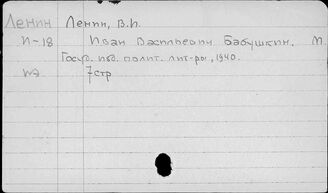 Ленин Ленин, В.И.
И-18 Иван Васильевич Бабушкин. М.
Госуд. изд. полит. лит-ры, 1940.
7 стр